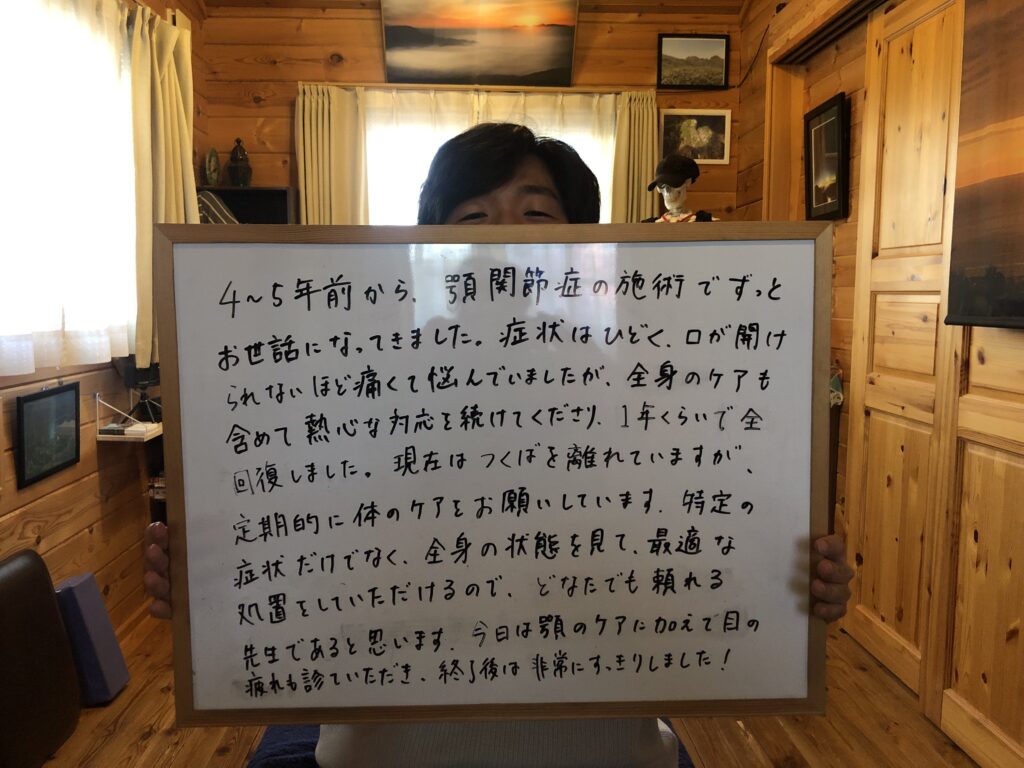 4〜5年前から、顎関節症の施術でずっと
お世話になってきました。症状はひどく、口が開け
られないほど痛くて悩んでいましたが、全身のケアも
含めて熱心な対応を続けてくださり、1年くらいで全
回復しました。現在はつくばを離れていますが、
定期的に体のケアをお願いしています。特定の
症状だけでなく、全身の状態を見て、最適な
処置をしていただけるので、どなたでも頼れる
先生であると思います。今日は顎のケアに加えて目の
疲れも診ていただき、終了後は非常にすっきりしました!